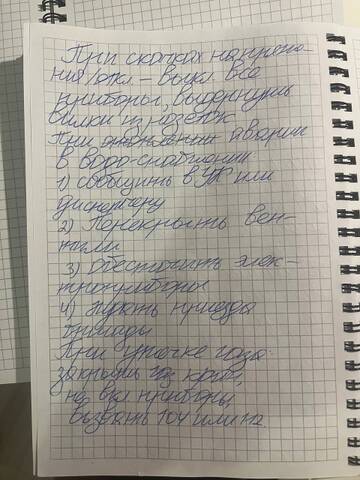 При скачках напряже-
ния/откл. – выкл. все
приборы, выдернуть
вилки из розеток
При аварии
в водо-снабжении
1) сообщить в УК или
диспетчеру
2) Перекрыть вен-
тили
3) Обесточить элек-
троприборы
4) Ждать приезда
бригады
При утечке газа
закрыть газ. кран,
не вкл приборы
вызвать 104 или на